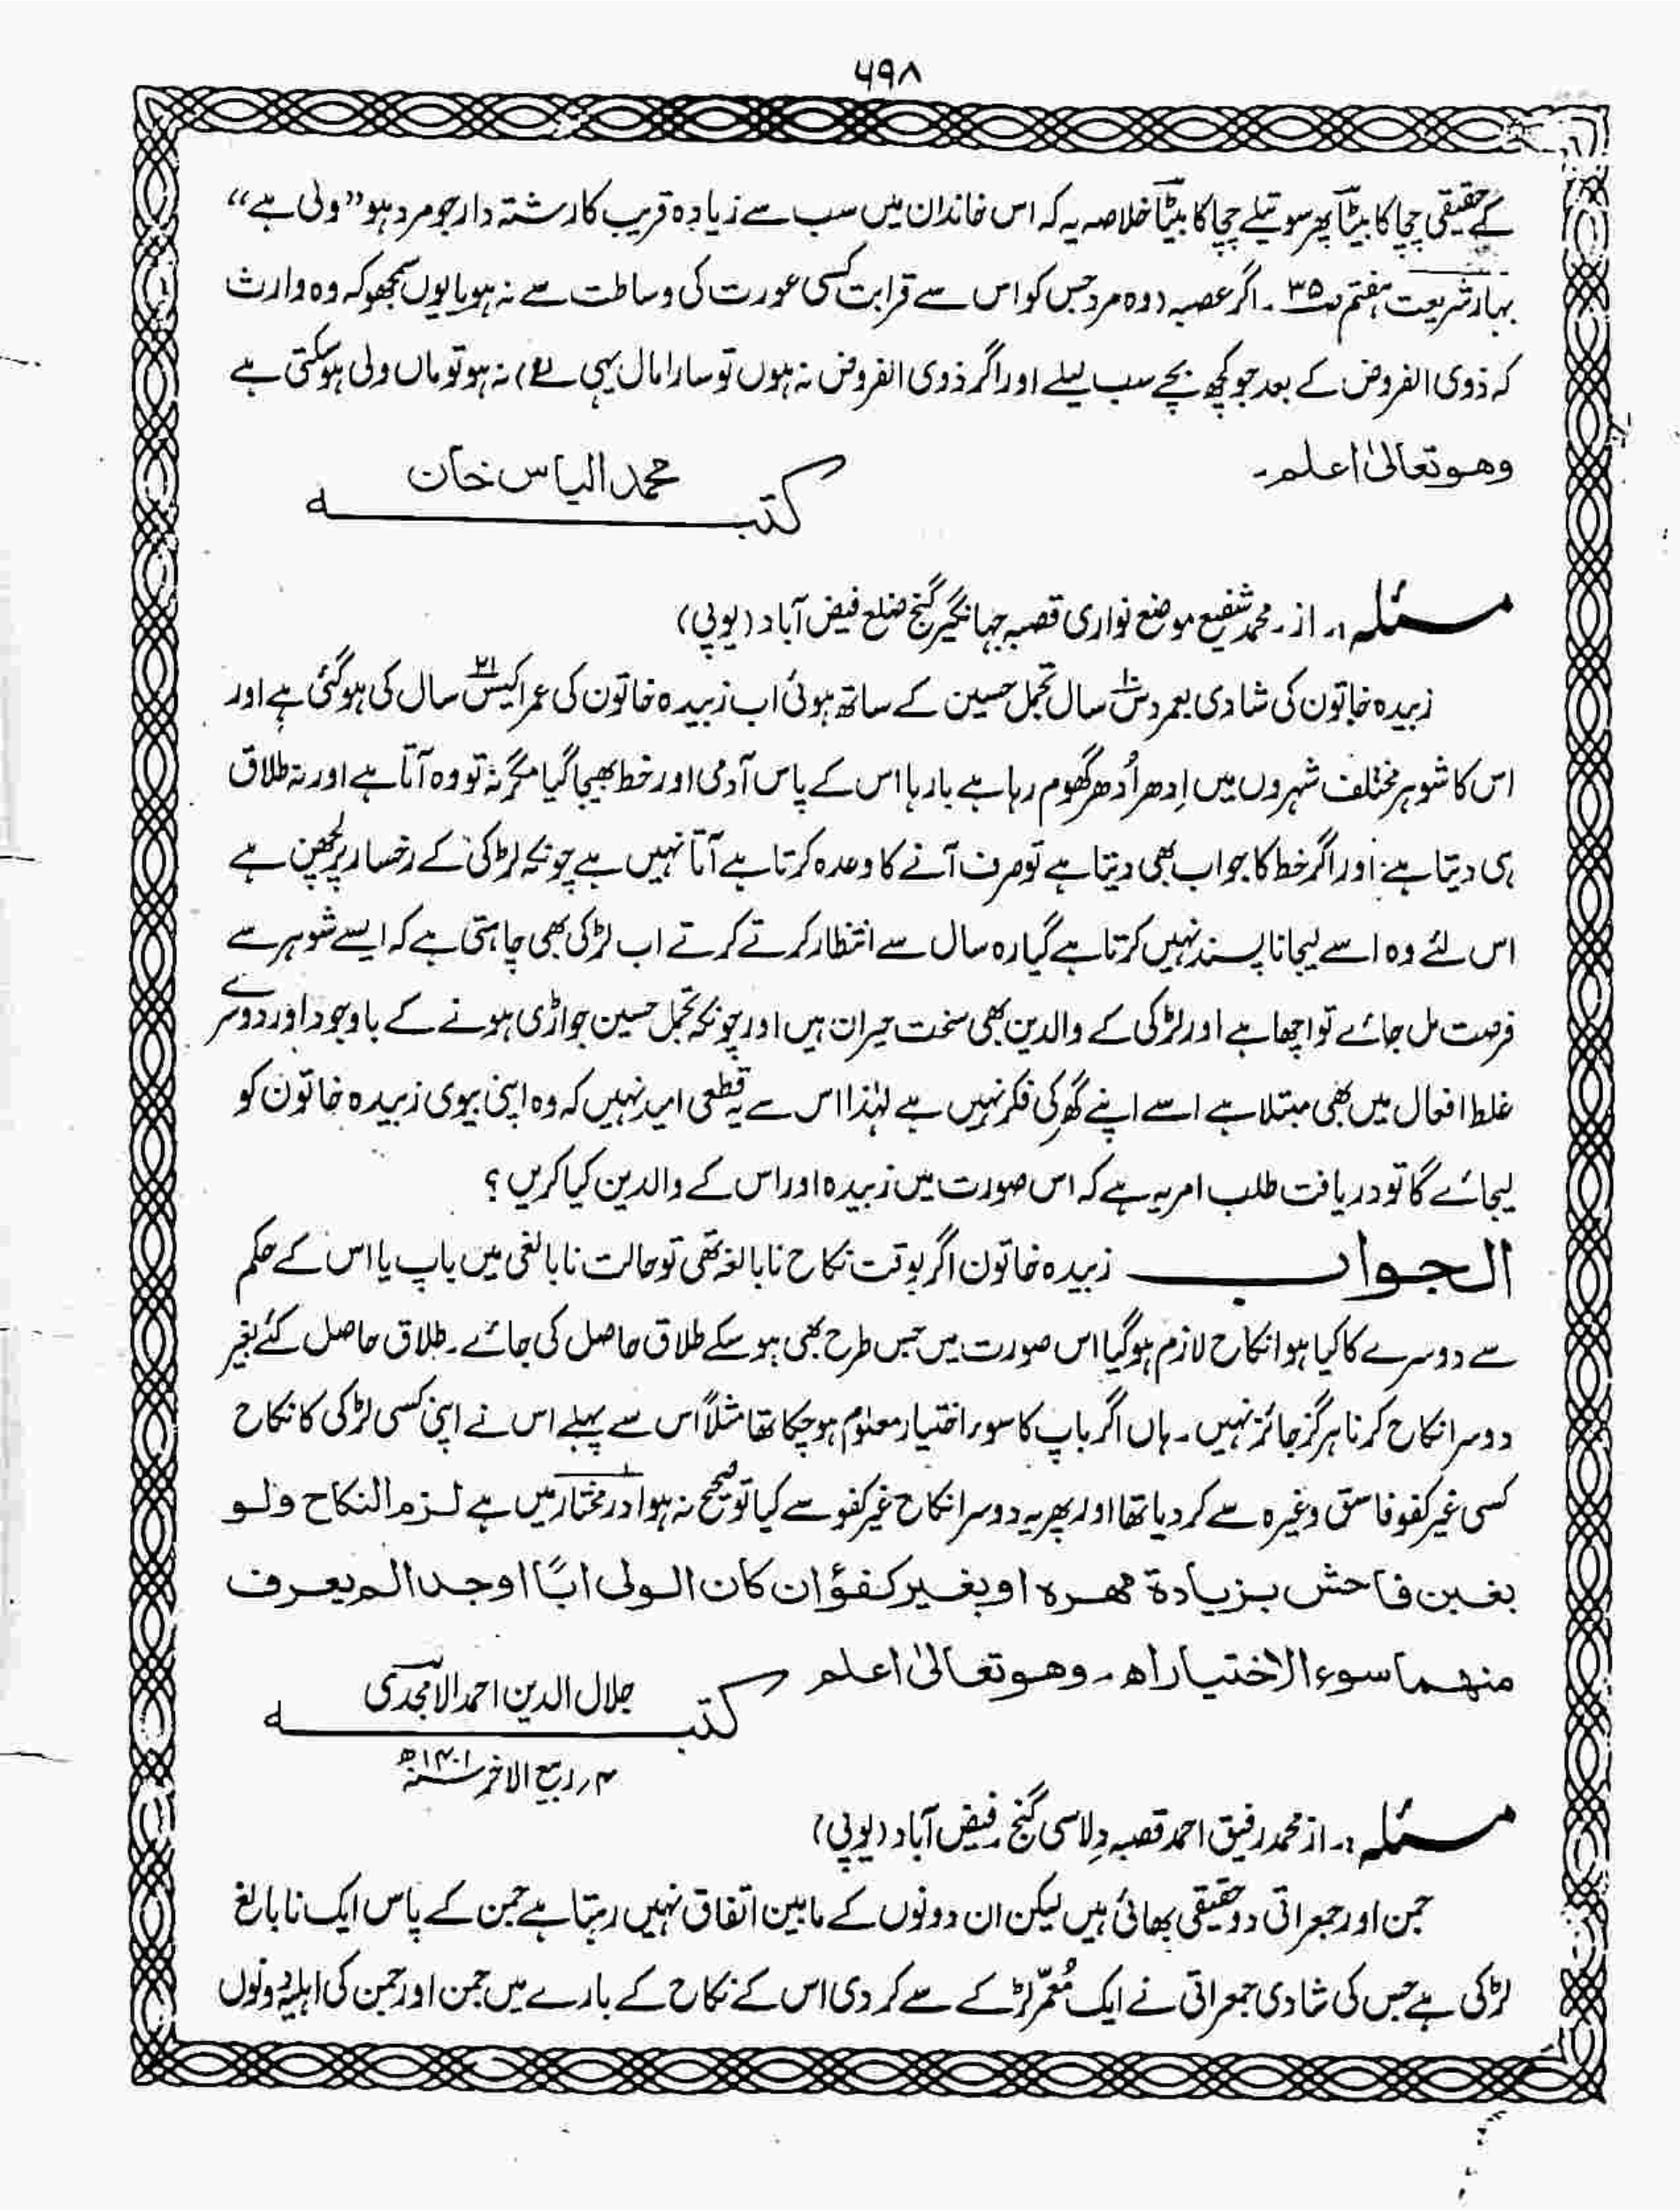 ۶۹۸
کے حقیقی چچا کا بیٹا پھر سوتیلے چچا کا بیٹا خلاصہ یہ کہ اس خاندان میں سب سے زیادہ قریب کا رشتہ دار جو مرد ہو ”ولی ہے“
بہار شریعت ہفتم ص۳۵ ۔ اگر عصبہ (وہ مرد جس کو اس سے قرابت کسی عورت کی وساطت سے نہ ہو یا یوں سمجھو کہ وہ وارث
کہ ذوی الفروض کے بعد جو کچھ بچے سب لیلے اور اگر ذوی الفروض نہ ہوں تو سارا مال یہی لے) نہ ہو تو ماں ولی ہوسکتی ہے
وھو تعالیٰ اعلم۔
محمد الیاس خان
کتبہ
مسئلہ:۔ از۔ محمد شفیع موضع نواری قصبہ جہانگیر گنج ضلع فیض آباد (یوپی)
زبیدہ خاتون کی شادی بعمر دس۱۰ سال تجمل حسین کے ساتھ ہوئی اب زبیدہ خاتون کی عمر اکیس۲۱ سال کی ہوگئی ہے اور
اس کا شوہر مختلف شہروں میں اِدھر اُدھر گھوم رہا ہے بارہا اس کے پاس آدمی اور خط بھیجا گیا مگر نہ تو وہ آتا ہے اور نہ طلاق
ہی دیتا ہے اور اگر خط کا جواب بھی دیتا ہے تو صرف آنے کا وعدہ کرتا ہے آتا نہیں ہے چونکہ لڑکی کے رخسار پر لچھن ہے
اس لئے وہ اسے لیجانا پسند نہیں کرتا ہے گیارہ سال سے انتظار کرتے کرتے اب لڑکی بھی چاہتی ہے کہ ایسے شوہر سے
فرصت مل جائے تو اچھا ہے اور لڑکی کے والدین بھی سخت حیران ہیں اور چونکہ تجمل حسین جواڑی ہونے کے باوجود اور دوسرے
غلط افعال میں بھی مبتلا ہے اسے اپنے گھر کی فکر نہیں ہے لہٰذا اس سے یہ قطعی امید نہیں کہ وہ اپنی بیوی زبیدہ خاتون کو
لیجائے گا تو دریافت طلب امر یہ ہے کہ اس صورت میں زبیدہ اور اس کے والدین کیا کریں ؟
الجواب زبیدہ خاتون اگر بوقت نکاح نابالغہ تھی تو حالت نابالغی میں باپ یا اس کے حکم
سے دوسرے کا کیا ہوا نکاح لازم ہوگیا اس صورت میں جس طرح بھی ہوسکے طلاق حاصل کی جائے۔ طلاق حاصل کئے بغیر
دوسرا نکاح کرنا ہرگز جائز نہیں۔ ہاں اگر باپ کا سوء اختیار معلوم ہوچکا تھا مثلاً اس سے پہلے اس نے اپنی کسی لڑکی کا نکاح
کسی غیر کفو فاسق وغیرہ سے کردیا تھا اور پھر یہ دوسرا نکاح غیر کفو سے کیا تو صحیح نہ ہوا در مختار میں ہے لزم النکاح ولو
بغبن فاحش بزیادۃ مھرہ او بغیر کفؤ ان کان الولی ابًا او جدا لم یعرف
منھما سوء الاختیار اھ۔ وھو تعالیٰ اعلم
جلال الدین احمد الامجدی
کتبہ
۴؍ ربیع الآخر سنہ ۱۴۰۱ھ
مسئلہ:۔ از محمد رفیق احمد قصبہ دِلاسی گنج۔ فیض آباد (یوپی)
جمن اور جمعراتی دو حقیقی بھائی ہیں لیکن ان دونوں کے مابین اتفاق نہیں رہتا ہے جمن کے پاس ایک نابالغ
لڑکی ہے جس کی شادی جمعراتی نے ایک مُعمّر لڑکے سے کردی اس کے نکاح کے بارے میں جمن اور جمن کی اہلیہ دونوں